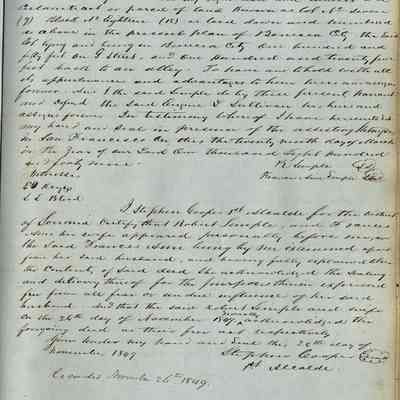 a certain lot or parcel of land known as Lot No. Seven
(7) Block No. Eighteen (18) as laid down and numbered
as above in the present plan of Benicia City the said
Lot lying and being in Benicia City One hundred and
fifty feet on I Street and One Hundred and twenty five
feet back to an alley. To have and to hold with all
its appurtenances and advantages to him his heirs and assigns
forever And I the said Semple do by these present warrant
and defend the said Eugene L Sullivan his heirs and
assigns forever. In testimony whereof I have hereunto set
my hand and seal in presence of the attesting Witnesses
in San Francisco On this the twenty ninth day of March
in the Year of our Lord One thousand Eight hundred
and forty nine.
R. Semple
Witnesses
Frances Ann Semple
I Stephen Cooper 1st Alcalde for the district
of Sonoma Certify that Robert Semple, and Frances
Ann his wife appeared personally before me and
the said Frances Ann being by me examined apart
from her said husband, and having fully explained to her
the Contents of said deed She acknowledged the sealing
and delivery thereof for the purposes therein expressed
free from all fear or undue influence of her said
husband and that the said Robert Semple and wife
on the 26th day of November 1849 acknowledged the
foregoing deed as their free act respectively
Given Under my hand and Seal this 26th day of
November 1849
Stephen Cooper
1st Alcalde.
Recorded November 26th 1849.